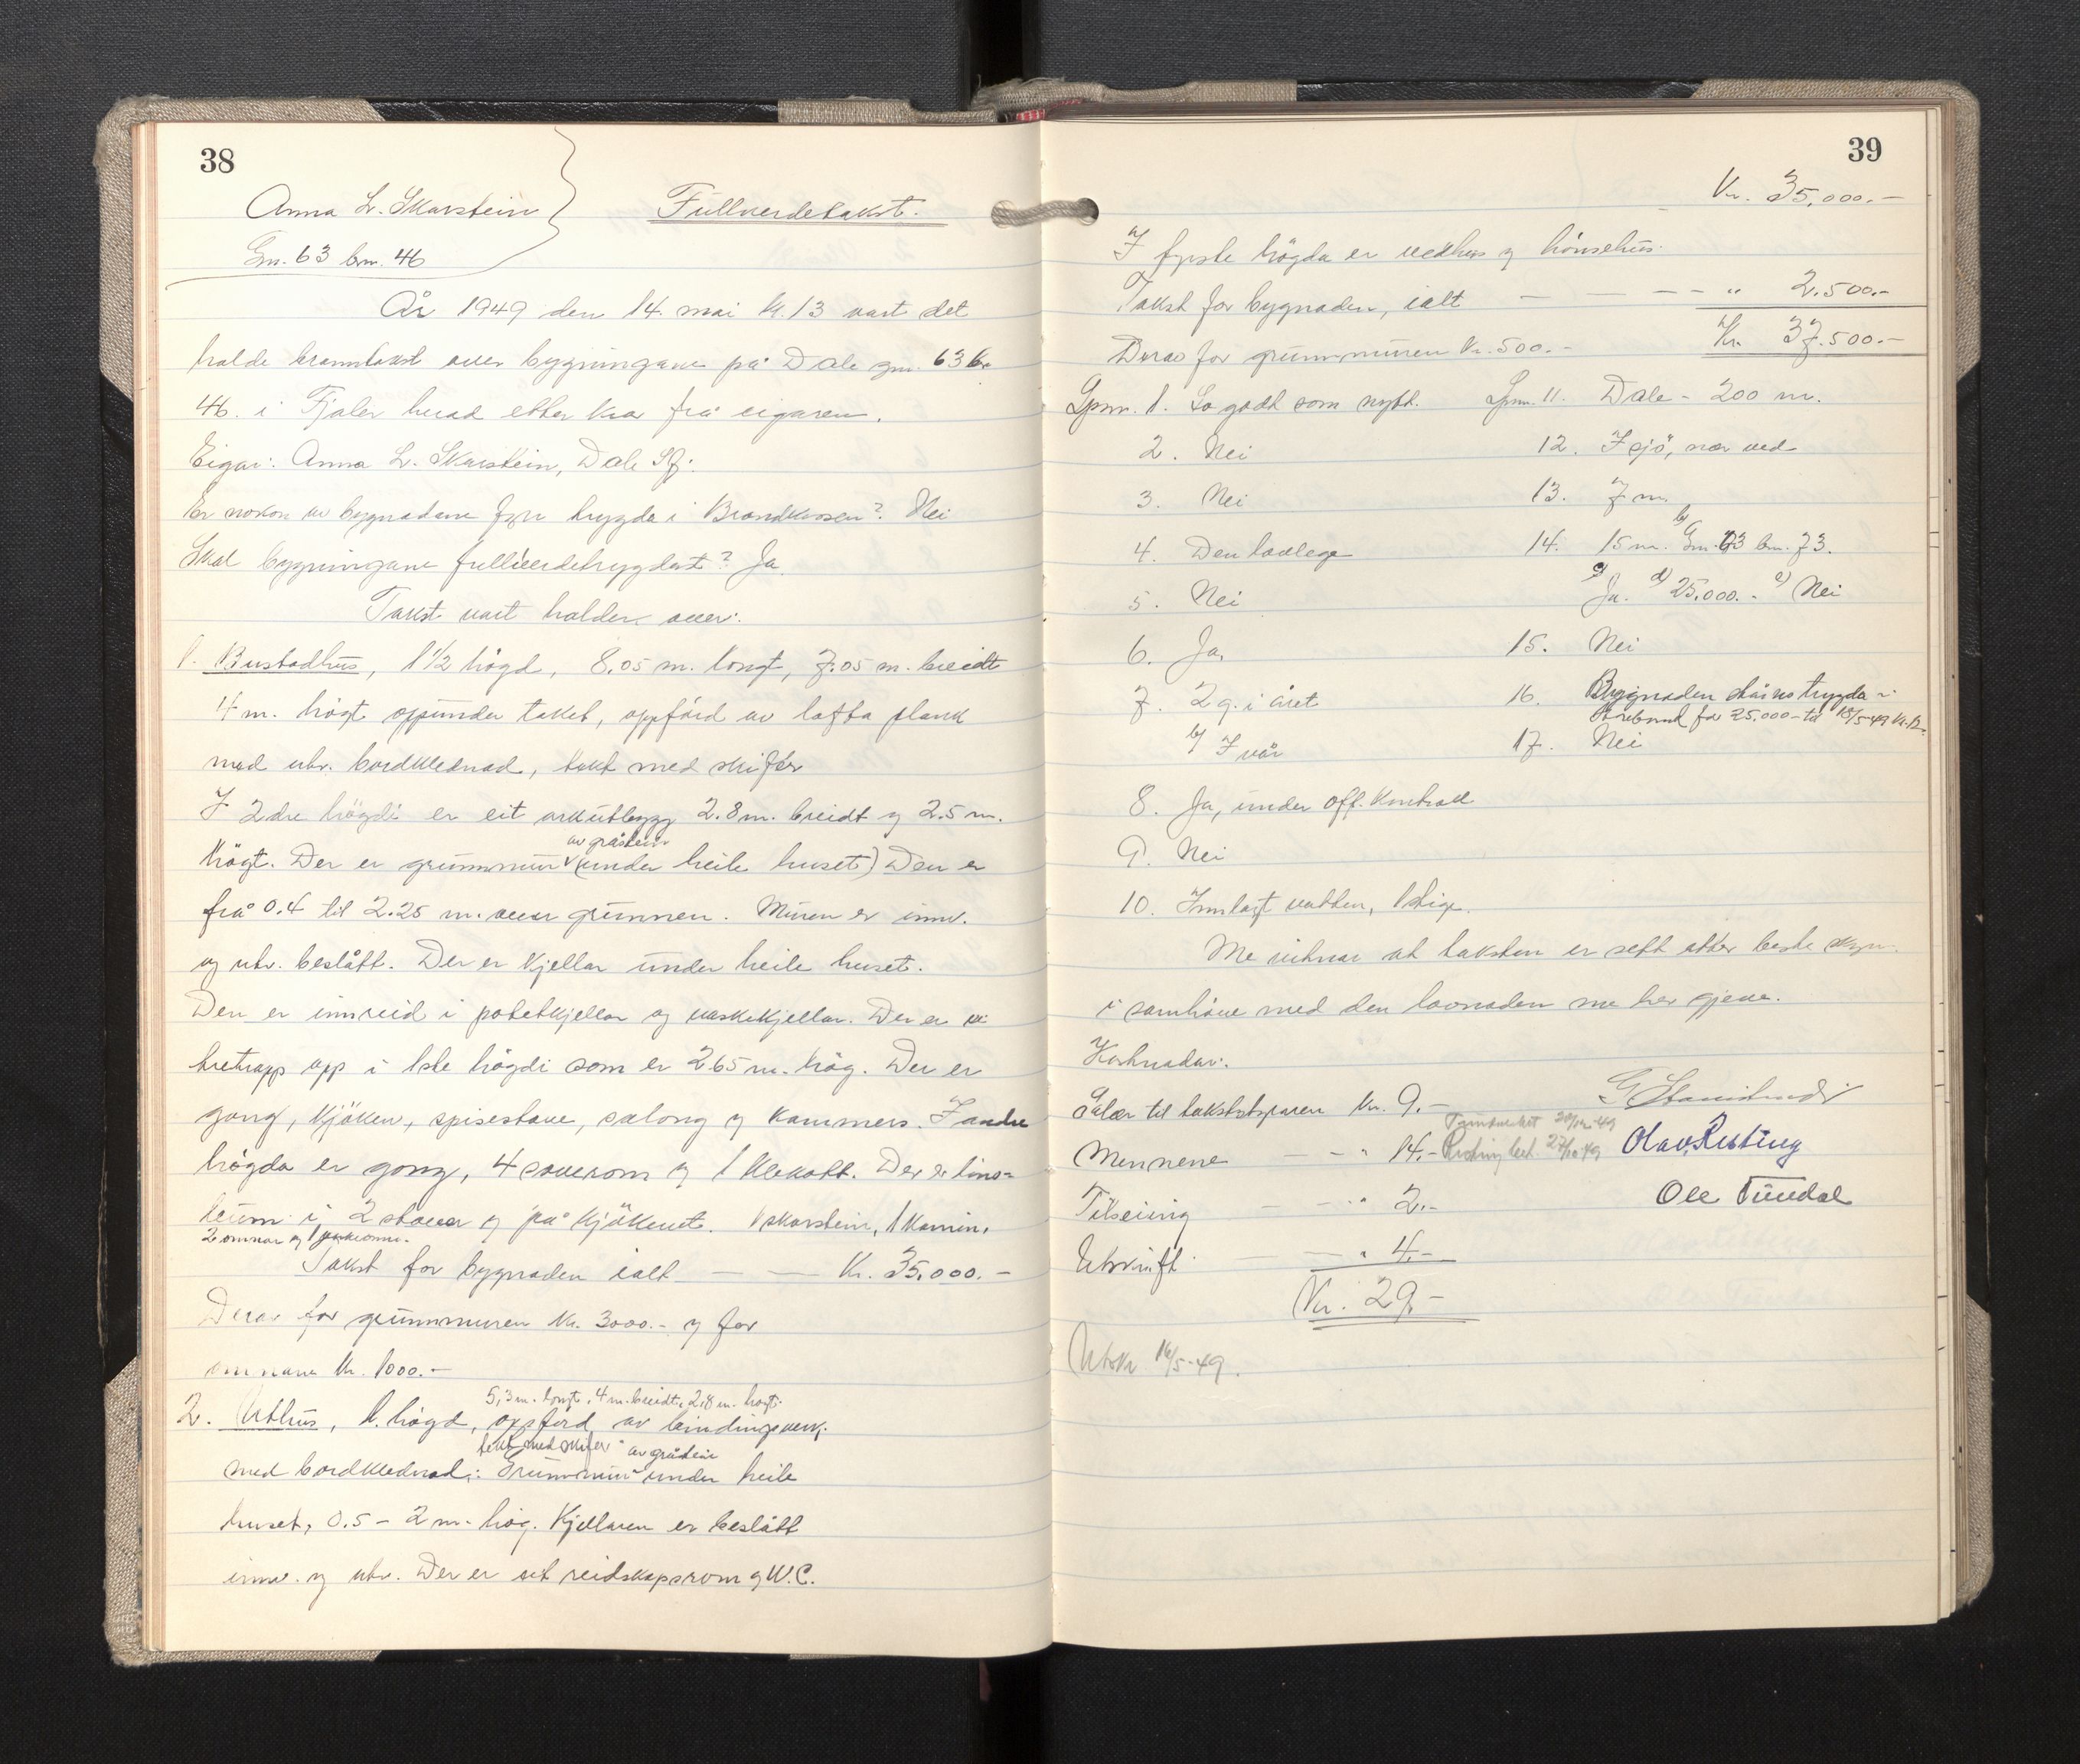 38
Anna L. Skarstein
Fullverdetakst.
Gn. 63 bnr. 46
År 1949 den 14. mai kl. 13 vart det
halde branntakst over bygningane på Dale gnr. 63 bnr
46. i Fjaler herad etter krav frå eigaren.
Eigar: Anna L. Skarstein, Dale Sfj.
Er nokon av bygnadane fyrr trygda i Brandkassen? Nei
Skal bygningane fullverdetrygdast? Ja.
Takst vart halden over:
1. Bustadhus, 1 1/2 högd, 8.05 m. langt, 7.05 m. breidt
4 m. högt oppunder taket, oppförd av lafta plank
med utv. bordklednad, tekt med skifer
I 2dre högdi er eit arkutbygg 2.8 m. breidt og 2.5 m.
högt. Der er grunnmur av gråstein (under heile huset) Den er
frå 0.4 til 2.25 m. over grunnen. Muren er innv.
og utv. beslått. Der er kjellar under heile huset.
Den er innreid i potetkjellar og vaskekjellar. Der er
tretrapp opp i 1ste högdi som er 2.65 m. hög. Der er
gang, kjöken, spisestove, salong og kammers. I andre
högda er gang, 4 soverom og 1 klekott. Der er lino=
leum i 2 stover og på kjökenet. 1 skorstein, 1 kamin,
2 omnar og 1
Takst for bygnaden ialt — — Kr. 35.000.-
Derav for grunnmuren kr. 3000.- og for
omnane kr. 1000.-
5,3 m. langt, 4 m. breidt, 2,8 m. högt.
2. Uthus, 1. högd, oppförd av bindingsverk.
tekt med skifer av gråstein
med bordklednad; Grunnmur under heile
huset, 0.5 - 2 m. hög. Kjellaren er beslått
innv. og utv. Der er eit reidskapsrom og W.C.
39
Kr. 35.000.-
I fyrste högda er vedhus og hönsehus.
Takst for bygnaden, ialt — — — - " 2.500.-
Kr. 37.500.-
Derav for grunnmuren kr. 500.-
Spm. 1. So godt som nytt.
Spm. 11. Dale - 200 m.
2. Nei
12. I sjö, nær ved
3. Nei
13. 7 m.
4. Den lovlege
14. 15 m. b) Gnr. 63 bnr. 73.
5. Nei
c) Ja. d) 25.000.- e) Nei
6. Ja,
15. Nei
7. 2 g. i året
16. Bygnaden står no trygda i
for 25.000 - til 18/5-49 kl. 12.
b) I vår
17. Nei
8. Ja, under off. kontroll
9. Nei
10. Innlagt vatten, 1 stige.
Me vitnar at taksten er sett etter beste skyn.
i samhöve med den lovnaden me her gjeve.
Kostnadar:
Salær til takstbstyraren kr. 9.-
Mennene — - " 14.-
Olav Risting
Tilseiing — - " 2.-
Ole Tundal
Utskrift — — " 4.-
Kr. 29.-
Utskr 16/5-49.